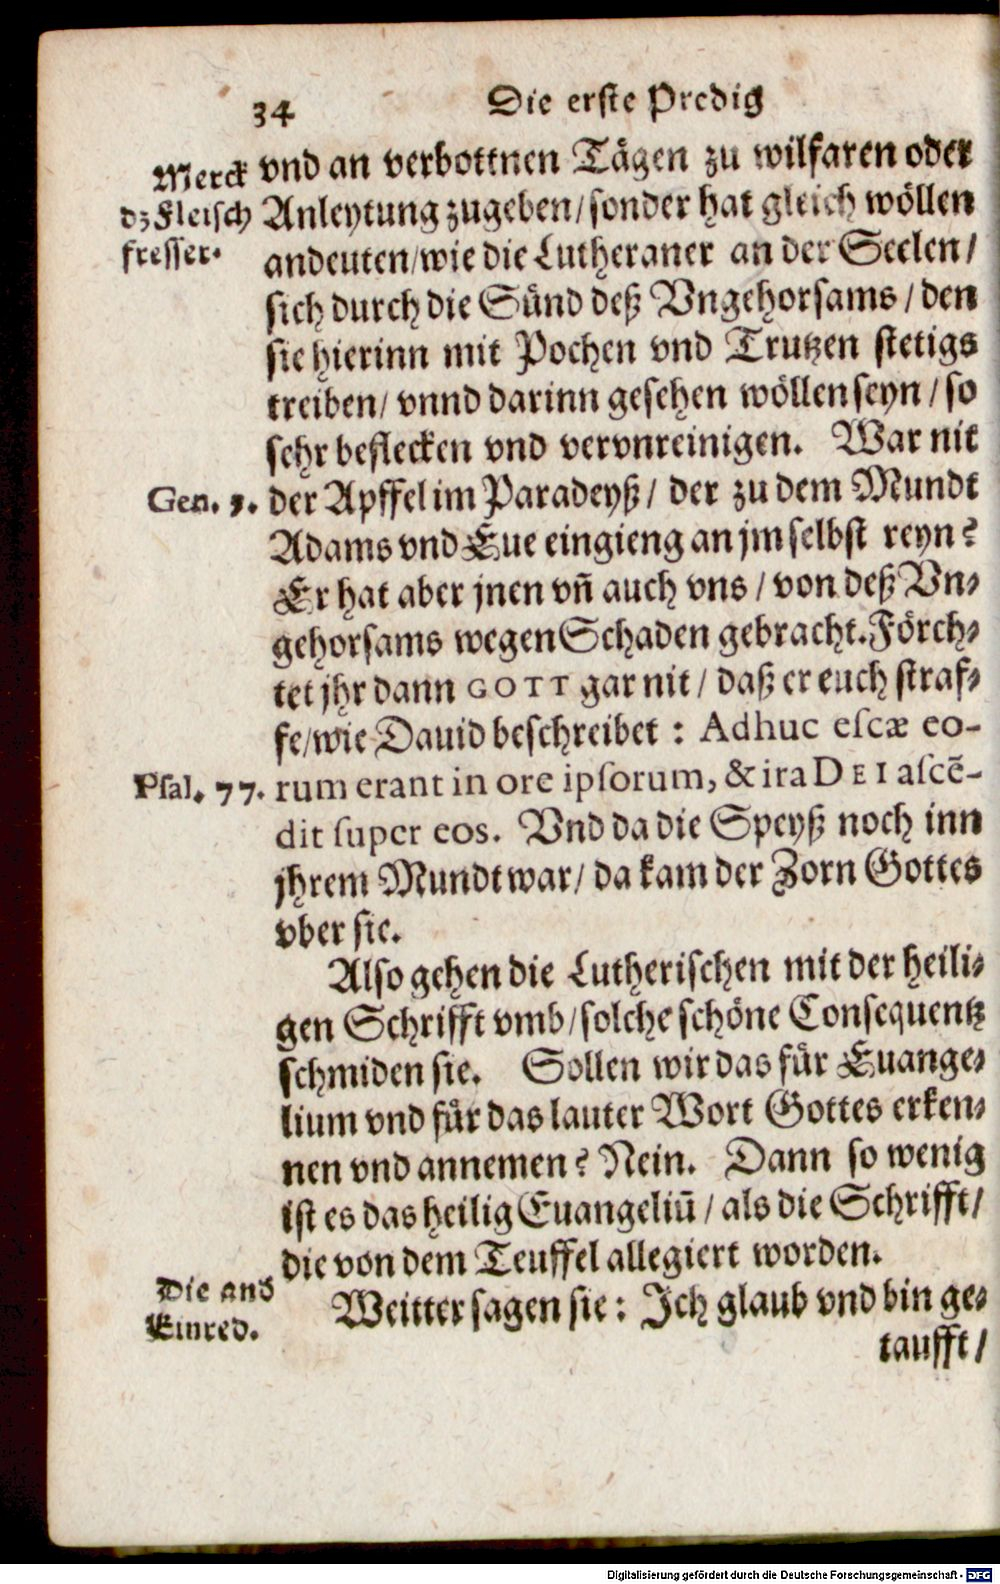 34 Die erste Predig
Merck
dz Fleisch
fresser.
vnd an verbottnen Tägen zu wilfaren oder
Anleytung zugeben / sonder hat gleich wöllen
andeuten / wie die Lutheraner an der Seelen /
sich durch die Sünd deß Vngehorsams / den
sie hierinn mit Pochen vnd Trutzen stetigs
treiben / vnnd darinn gesehen wöllen seyn / so
sehr beflecken vnd vervnreinigen. War nit
Gen. 3.
der Apffel im Paradeyß / der zu dem Mundt
Adams vnd Eue eingieng an jm selbst reyn?
Er hat aber jnen vñ auch vns / von deß Vn-
gehorsams wegen Schaden gebracht. Förch-
tet jhr dann GOTT gar nit / daß er euch straf-
fe / wie Dauid beschreibet : Adhuc escæ eo-
Psal. 77.
rum erant in ore ipsorum, & ira DEI ascẽ-
dit super eos. Vnd da die Speyß noch inn
jhrem Mundt war / da kam der Zorn Gottes
vber sie.
Also gehen die Lutherischen mit der heili-
gen Schrifft vmb / solche schöne Consequentz
schmiden sie. Sollen wir das für Euange-
lium vnd für das lauter Wort Gottes erken-
nen vnd annemen? Nein. Dann so wenig
ist es das heilig Euangeliũ / als die Schrifft /
die von dem Teuffel allegiert worden.
Die and
Einred.
Weitter sagen sie : Ich glaub vnd bin ge-
taufft /
Digitalisierung gefördert durch die Deutsche Forschungsgemeinschaft - DFG